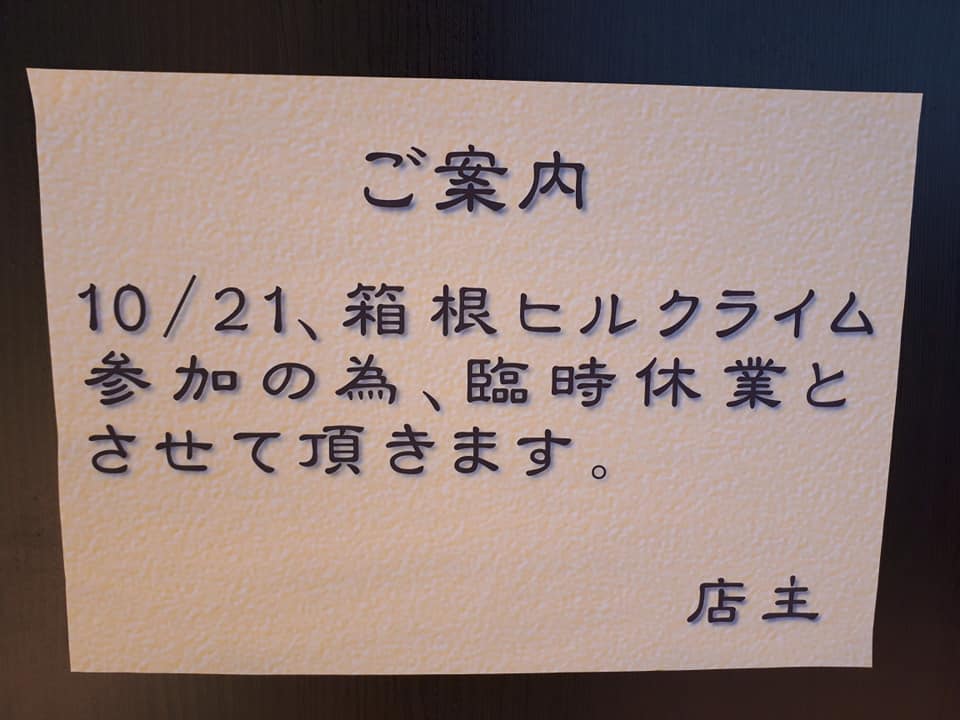 ご案内
10/21、箱根ヒルクライム
参加の為、臨時休業と
させて頂きます。
店主